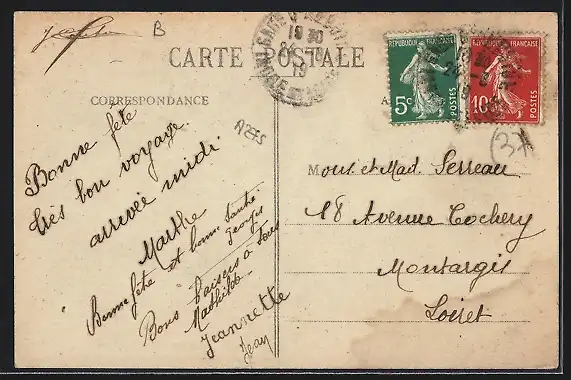 B
CARTE POSTALE
CORRESPONDANCE
Bonne fête
très bon voyage.
arrivée midi
Marthe
Bonne fête et bonne santé
Georges
Bons baisers à tous
Mathilde
Jeannette
Jean
REPUBLIQUE FRANÇAISE
5c
POSTES
REPUBLIQUE FRANÇAISE
10c
POSTES
37
Mons. et Mad. Serreau
18 Avenue Cochery
Montargis
Loiret